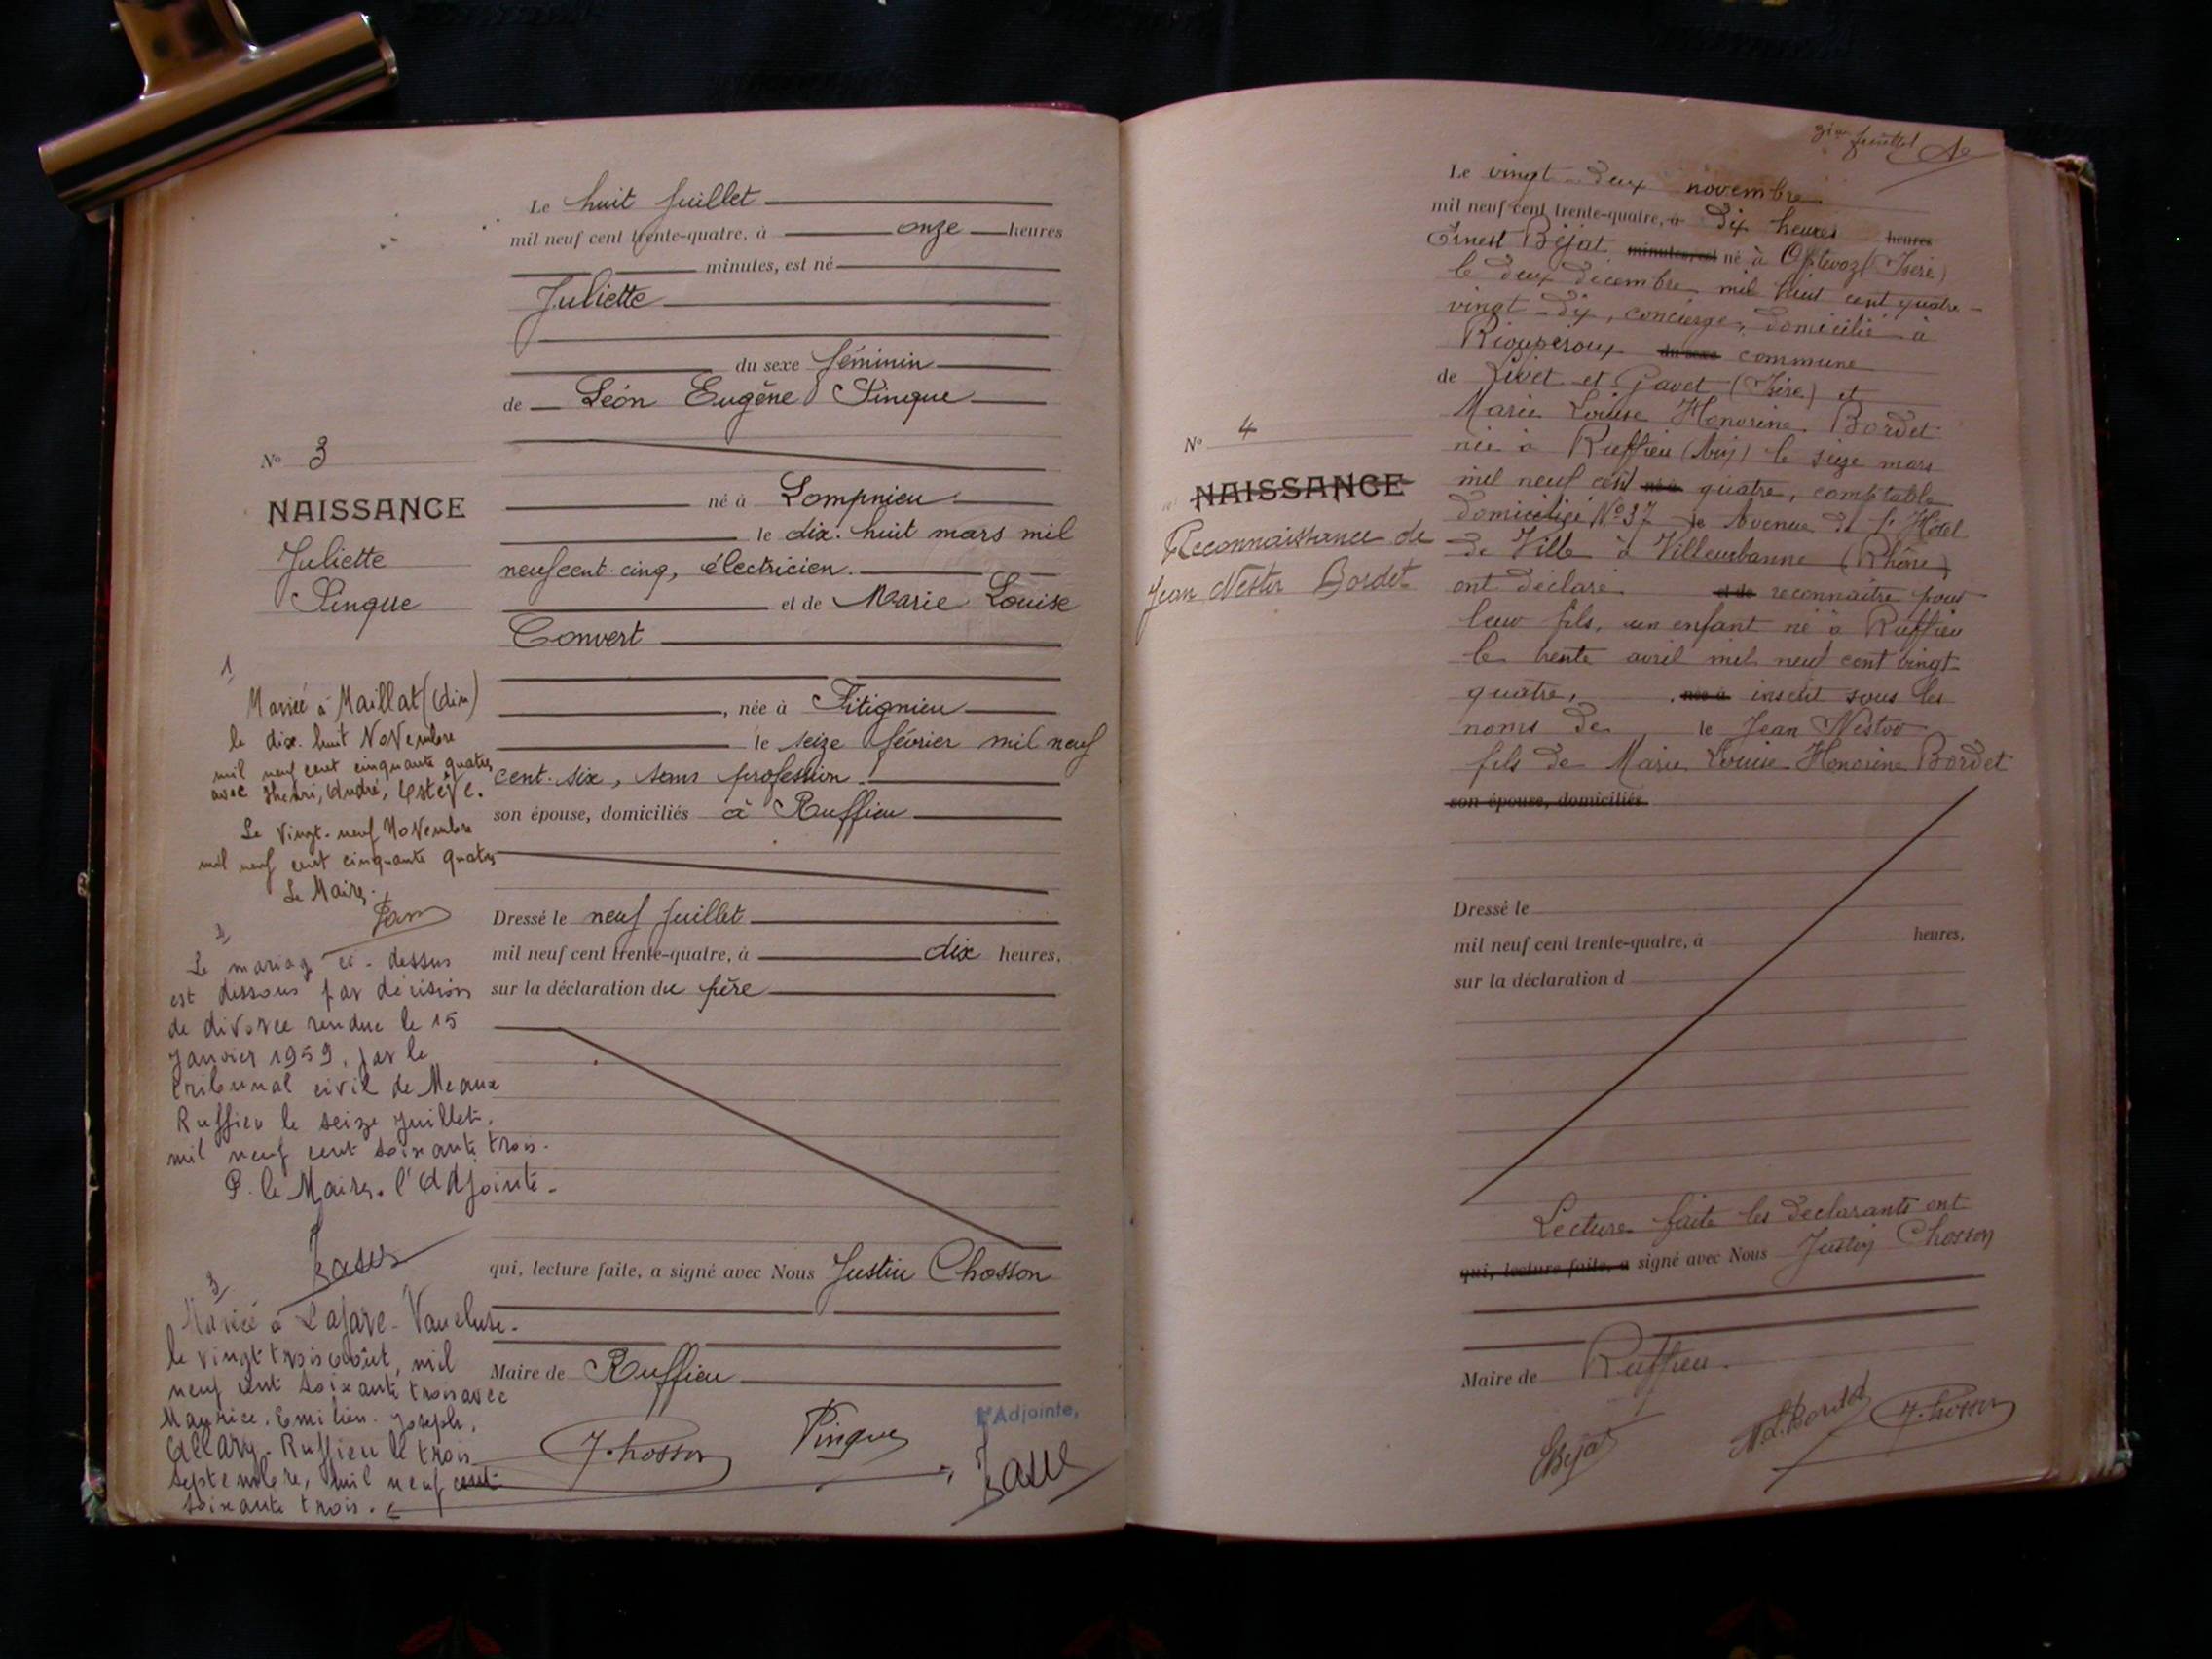 Le huit Juillet
mil neuf cent trente-quatre, à onze heures
minutes, est né
Juliette
du sexe féminin
de Léon Eugène Pingue
né à Lompnieu
le dix-huit mars mil
neuf cent cinq, électricien.
et de Marie Louise
Convert
, née à Sitignieu
le seize février mil neuf
cent six, sans profession
son épouse, domiciliés à Ruffieu
Dressé le neuf Juillet
mil neuf cent trente-quatre, à dix heures,
sur la déclaration du père
qui, lecture faite, a signé avec Nous Justin Chosson
Maire de Ruffieu
J. Chosson
Pingue
L'Adjointe,
N° 3
NAISSANCE
Juliette
Pingue
1
Mariée à Maillat (Ain)
le dix-huit Novembre
mil neuf cent cinquante quatre
avec Henri, André, Estève.
Le Vingt-neuf Novembre
mil neuf cent cinquante quatre
Le Maire.
2
Le mariage ci-dessus
est dissous par décision
de divorce rendue le 15
Janvier 1959, par le
tribunal civil de Meaux
Ruffieu le seize Juillet.
mil neuf cent soixante trois.
P. le Maire. l'Adjointe.
3
Mariée à Lafare-Vaucluse.
le vingt trois août, mil
neuf cent soixante trois avec
Maurice. Emilien. Joseph.
Allary. Ruffieu le trois
Septembre, mil neuf cent
soixante trois.
3ième feuillet
Le vingt-deux novembre
mil neuf cent trente-quatre, à dix heures heures
Ernest Béjat minutes, est né à Optevoz (Isère)
le deux décembre mil huit cent quatre-
vingt-dix, concierge, domicilié à
Rioupéroux du sexe commune
de Livet et Gavet (Isère) et
Marie Louise Honorine Bordet
née à Ruffieu (Ain) le seize mars
mil neuf cent né à quatre, comptable
domiciliée N° 37 le Avenue de l'Hôtel
de Ville à Villeurbanne (Rhône)
ont déclaré et de reconnaitre pour
leur fils, un enfant né à Ruffieu
le trente avril mil neuf cent vingt
quatre, née à inscrit sous les
noms de le Jean Nestor
fils de Marie Louise Honorine Bordet
son épouse, domiciliés
Dressé le
mil neuf cent trente-quatre, à heures,
sur la déclaration d
Lecture faite les déclarants ont
qui, lecture faite, a signé avec Nous Justin Chosson
Maire de Ruffieu.
EBéjat
M.L. Bordet
J. Chosson
N° 4
NAISSANCE
Reconnaissance de
Jean Nestor Bordet